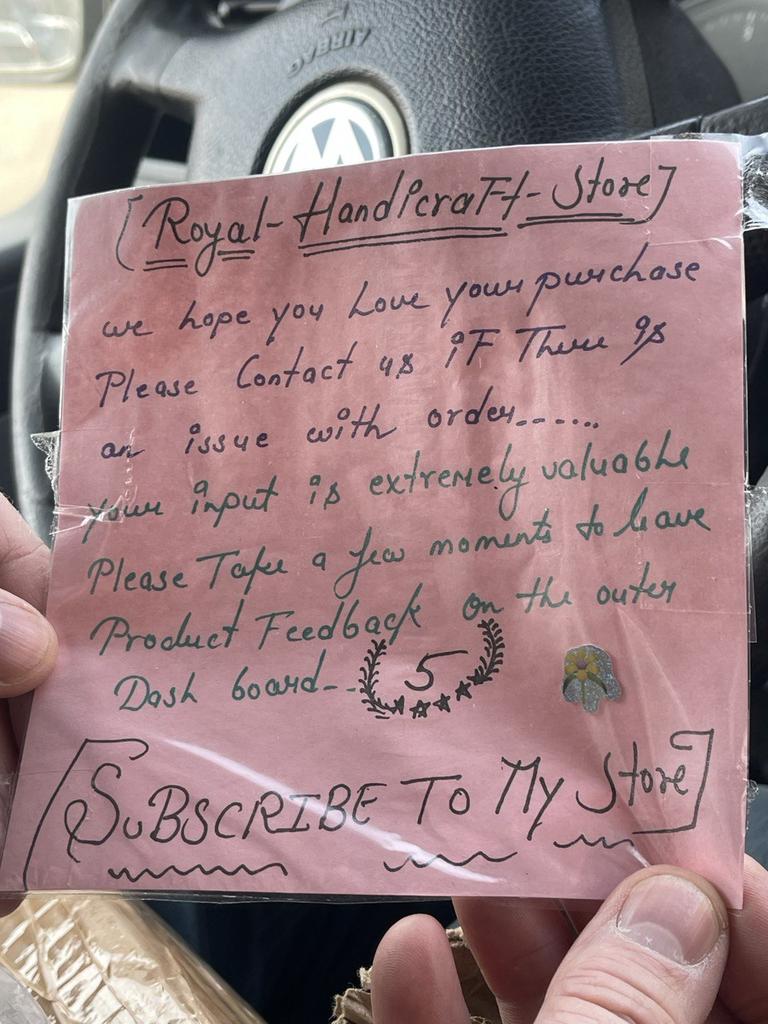 AIRBAG
[Royal-HandicraFt-Store]
we hope you Love your purchase
Please Contact us iF There is
an issue with order......
your input is extremely valuable
Please Take a few moments to leave
Product Feedback on the outer
Dash board--
5
[SuBSCRIBE To My Store]